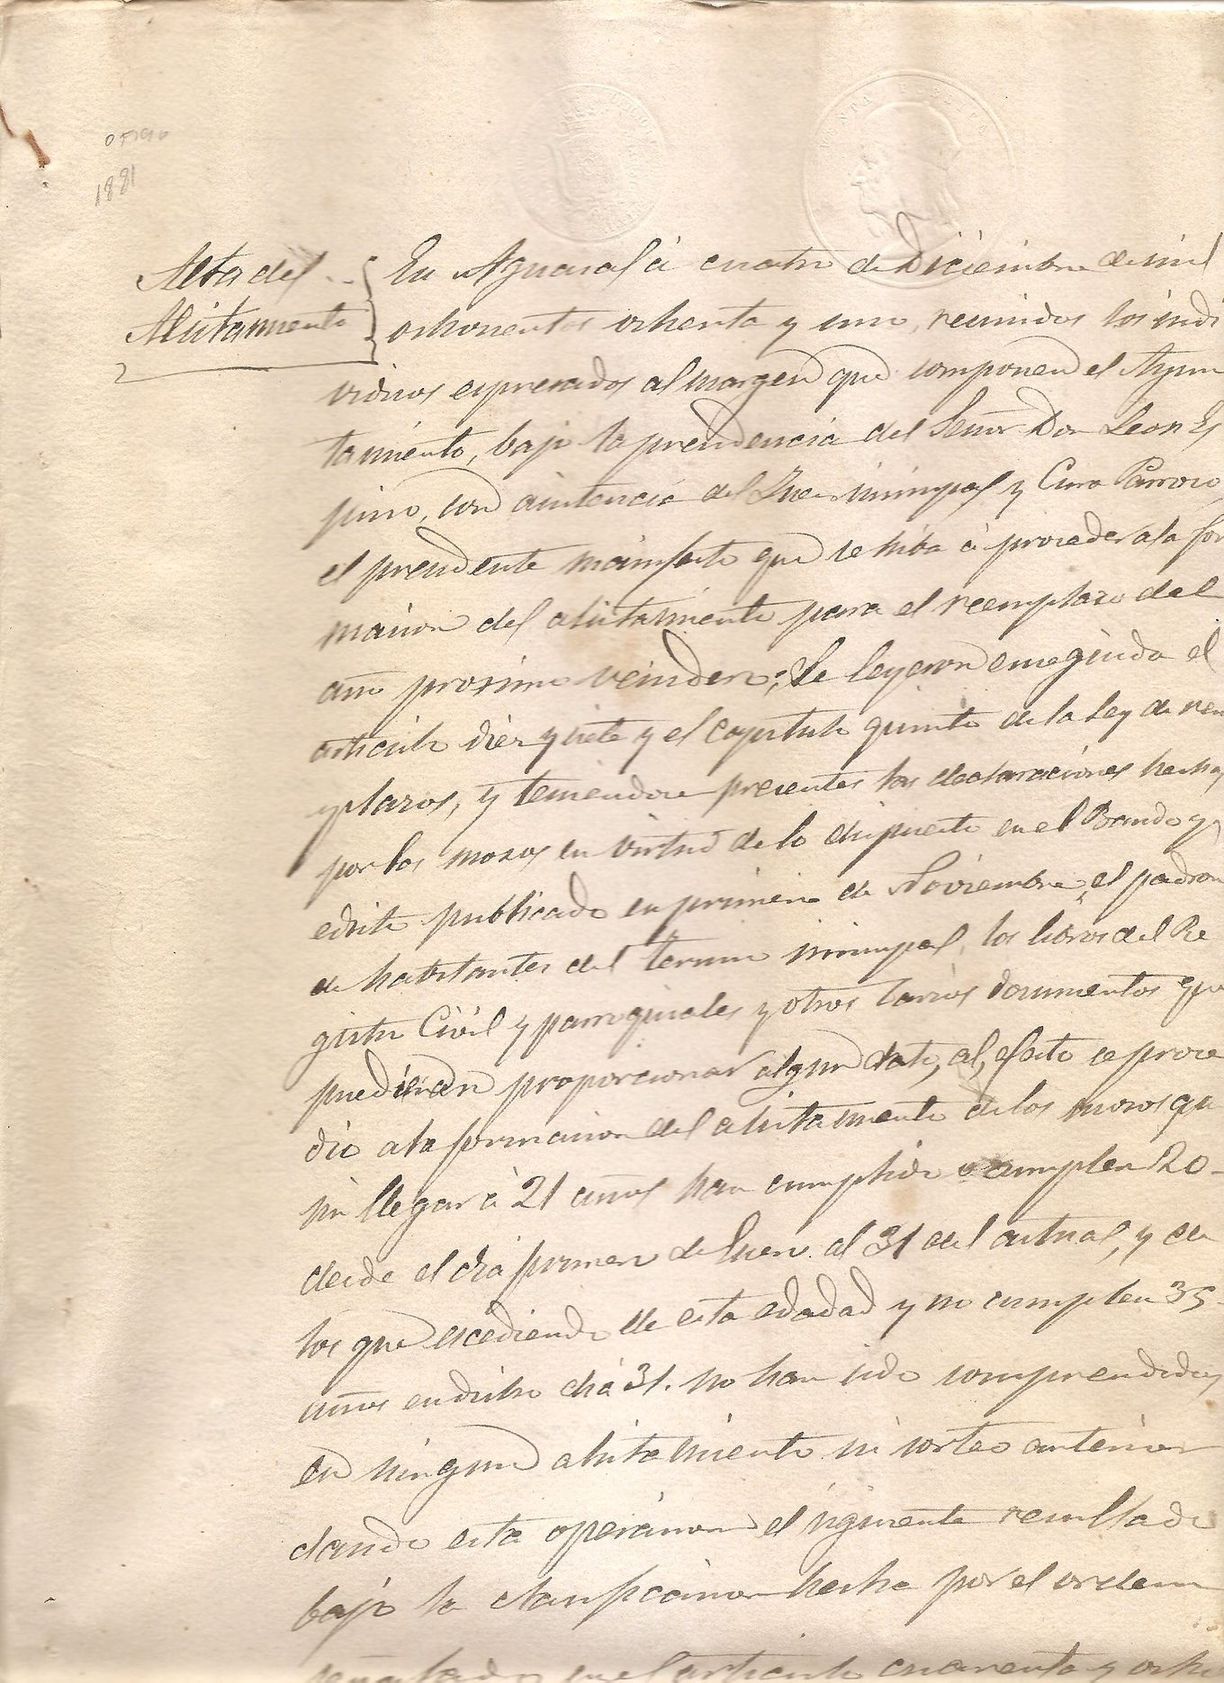 1881
Acta del
Alistamiento
En Aguasal á cuatro de Diciembre de mil
ochocientos ochenta y uno, reunidos los indi
viduos expresados al margen que componen el Ayun
tamiento, bajo la presidencia del Señor Don Leon Es
pino, con asistencia del Juez municipal y Cura Parroco,
el presidente manifesto que se hiba á proceder a la for
macion del alistamiento para el reemplazo del
año prosimo venidero; Se leyeron enseguida el
articulo diez y siete y el capitulo quinto de la Ley de reem
plazos, y teniendose presentes las declaraciones hechas
por los mozos en virtud de lo dispuesto en el Bando y
edicto publicado en primero de Noviembre, el padron
de habitantes del termino municipal, los libros del Re
gistro Civil y parroquiales y otros varios documentos que
pudieran proporcionar algun dato, al efecto se proce
dio a la formacion del alistamiento de los mozos que
sin llegar á 21 años han cumplido o cumplen 20
desde el dia primero de Enero al 31 del actual, y de
los que escediendo de esta edadad y no cumplen 35
años en dicho dia 31. no han sido comprendidos
en ningun alistamiento ni sorteo anterior
dando esta operacion el siguiente resultado
bajo la clasificacion hecha por el orden
señalado en el articulo cuarenta y ocho